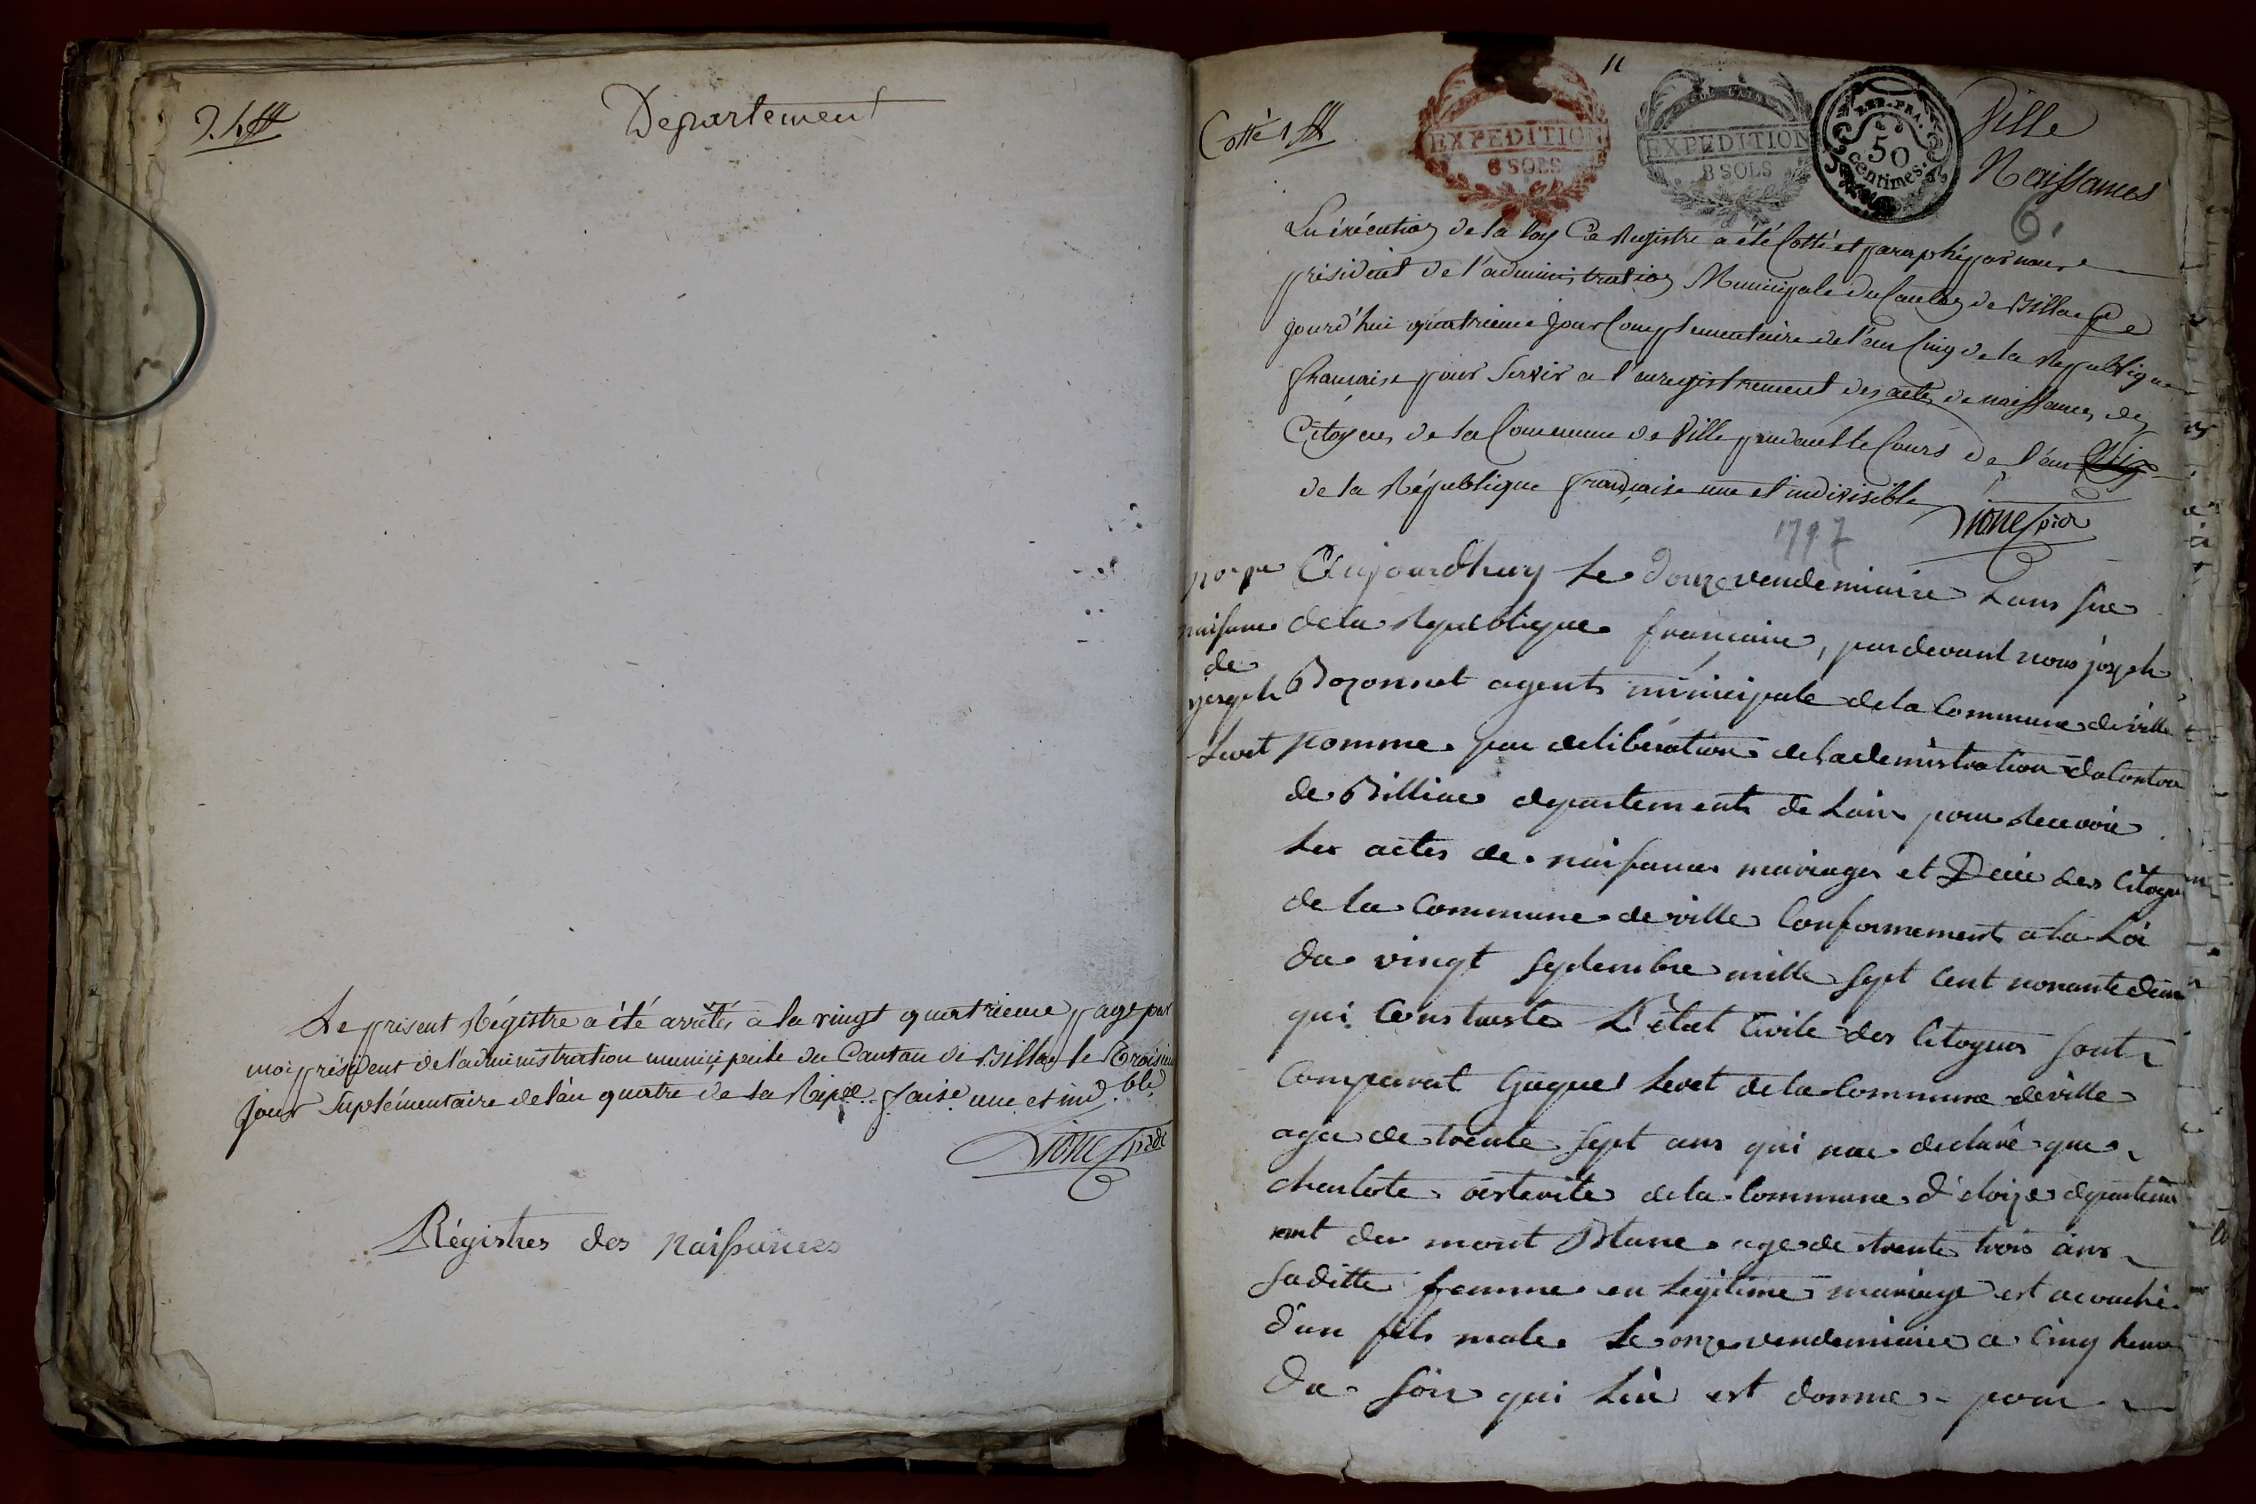 Departement
Le present Régistre a été arrêtés a la vingt quatrieme page par
moi président de l'administration municipale du Canton de Billia le troisieme
jour suplémentaire de l'an quatre de la Répee. fcaise une et ind.ble
Régistres des naissances
Cotté 1
EXPEDITION
6 SOLS
EXPEDITION
8 SOLS
REP. FRA.
50
Centimes.
Ville
Naissances
6.
En éxécution de la loy Ce Registre a été Cotté et paraphé par nous
président de l'administration Municipale du Canton de Billia Ce
jourd'hui quatrieme jour Complementaire de l'an Cinq de la Republique
francaise pour Servir a l'enregistrement des actes de naissances des
Citoyens de la Commune de Ville pendant le Cours de l'an Six
de la République française une et indivisible
1797
naisance
de
joseph
Levet
Aujourdhuy le douze vendemiaire Lans sice
de la Republique francaise, par devant nous joseph
Bozonnet agent municipale de la Commune de ville
nomme par deliberation de l'ademinstration du Canton
de Billiac departement de Lain pour Recevoir
Les actes de naisances mariages et Decé des Citoyens
de la Commune de ville Conformement a la Loi
du vingt septembre mille sept cent nonante deux
qui Constaste L'état Civile des Citoyens sont
Comparut Gaque Levet de la Commune de ville
agée de trente sept ans qui mae declaré que
charlote de la Commune d'eloize departeme
ment du mont Blanc age de trente trois ans
saditte femme en Legitime mariage est acouché
d'un fils male Le onze vendemiaire a Cinq heure
du soir qui Lui est donne pour